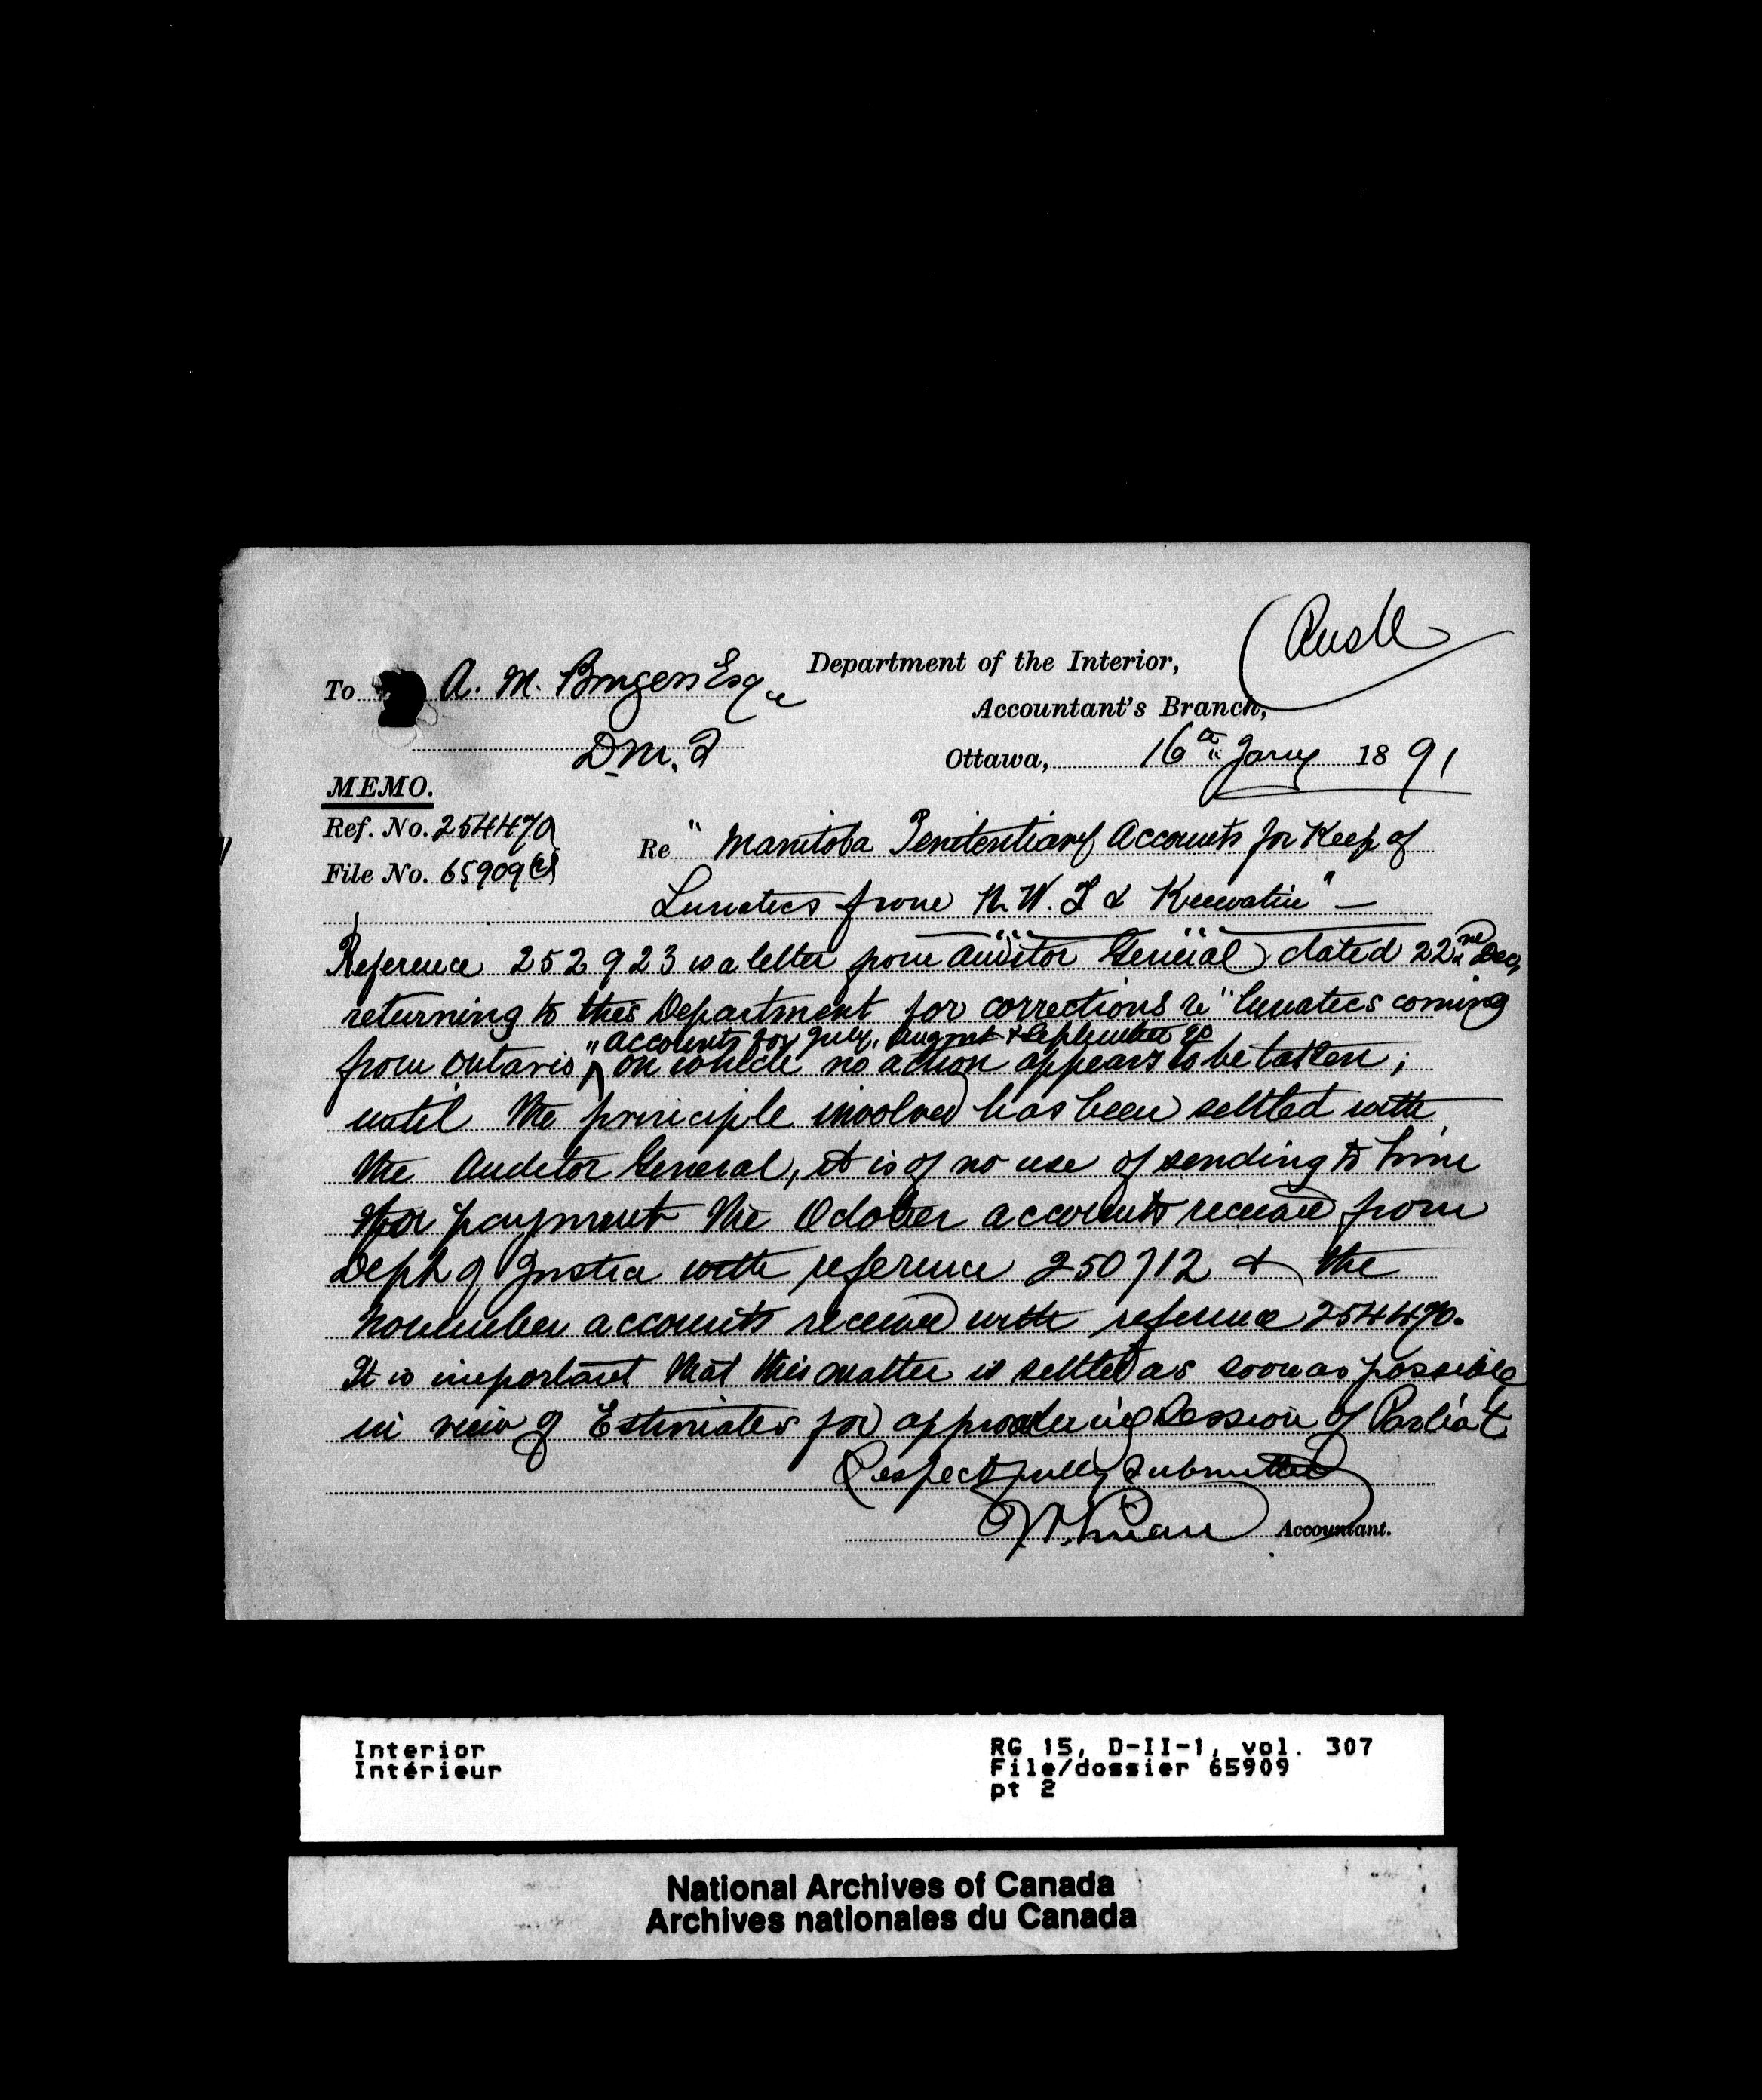 Rush
Department of the Interior,
To A. M. Burgess Esqre
Accountant's Branch,
D.M.I
Ottawa, 16th Jany 1891
MEMO.
Ref. No. 254470
File No. 65909
Re "Manitoba Penitentiary Accounts for Keep of
Lunatics from N.W.T & Keewatin" —
Reference 252923 is a letter from Auditor General dated 22nd Dec,
returning to this Department for corrections re "lunatics coming
accounts for July, August & September 90
from Ontario", on which no action appears to be taken;
until the principle involved has been settled with
the Auditor General, it is of no use of sending to him
for payment the October accounts received from
Dept of Justice with reference 250712 & the
November accounts received with reference 254470.
It is important that this matter is settled as soon as possible
in view of Estimates for approaching Session of Parlia't
Respectfully Submitted
Accountant.
Interior
Intérieur
RG 15, D-II-1, vol. 307
File/dossier 65909
pt 2
National Archives of Canada
Archives nationales du Canada